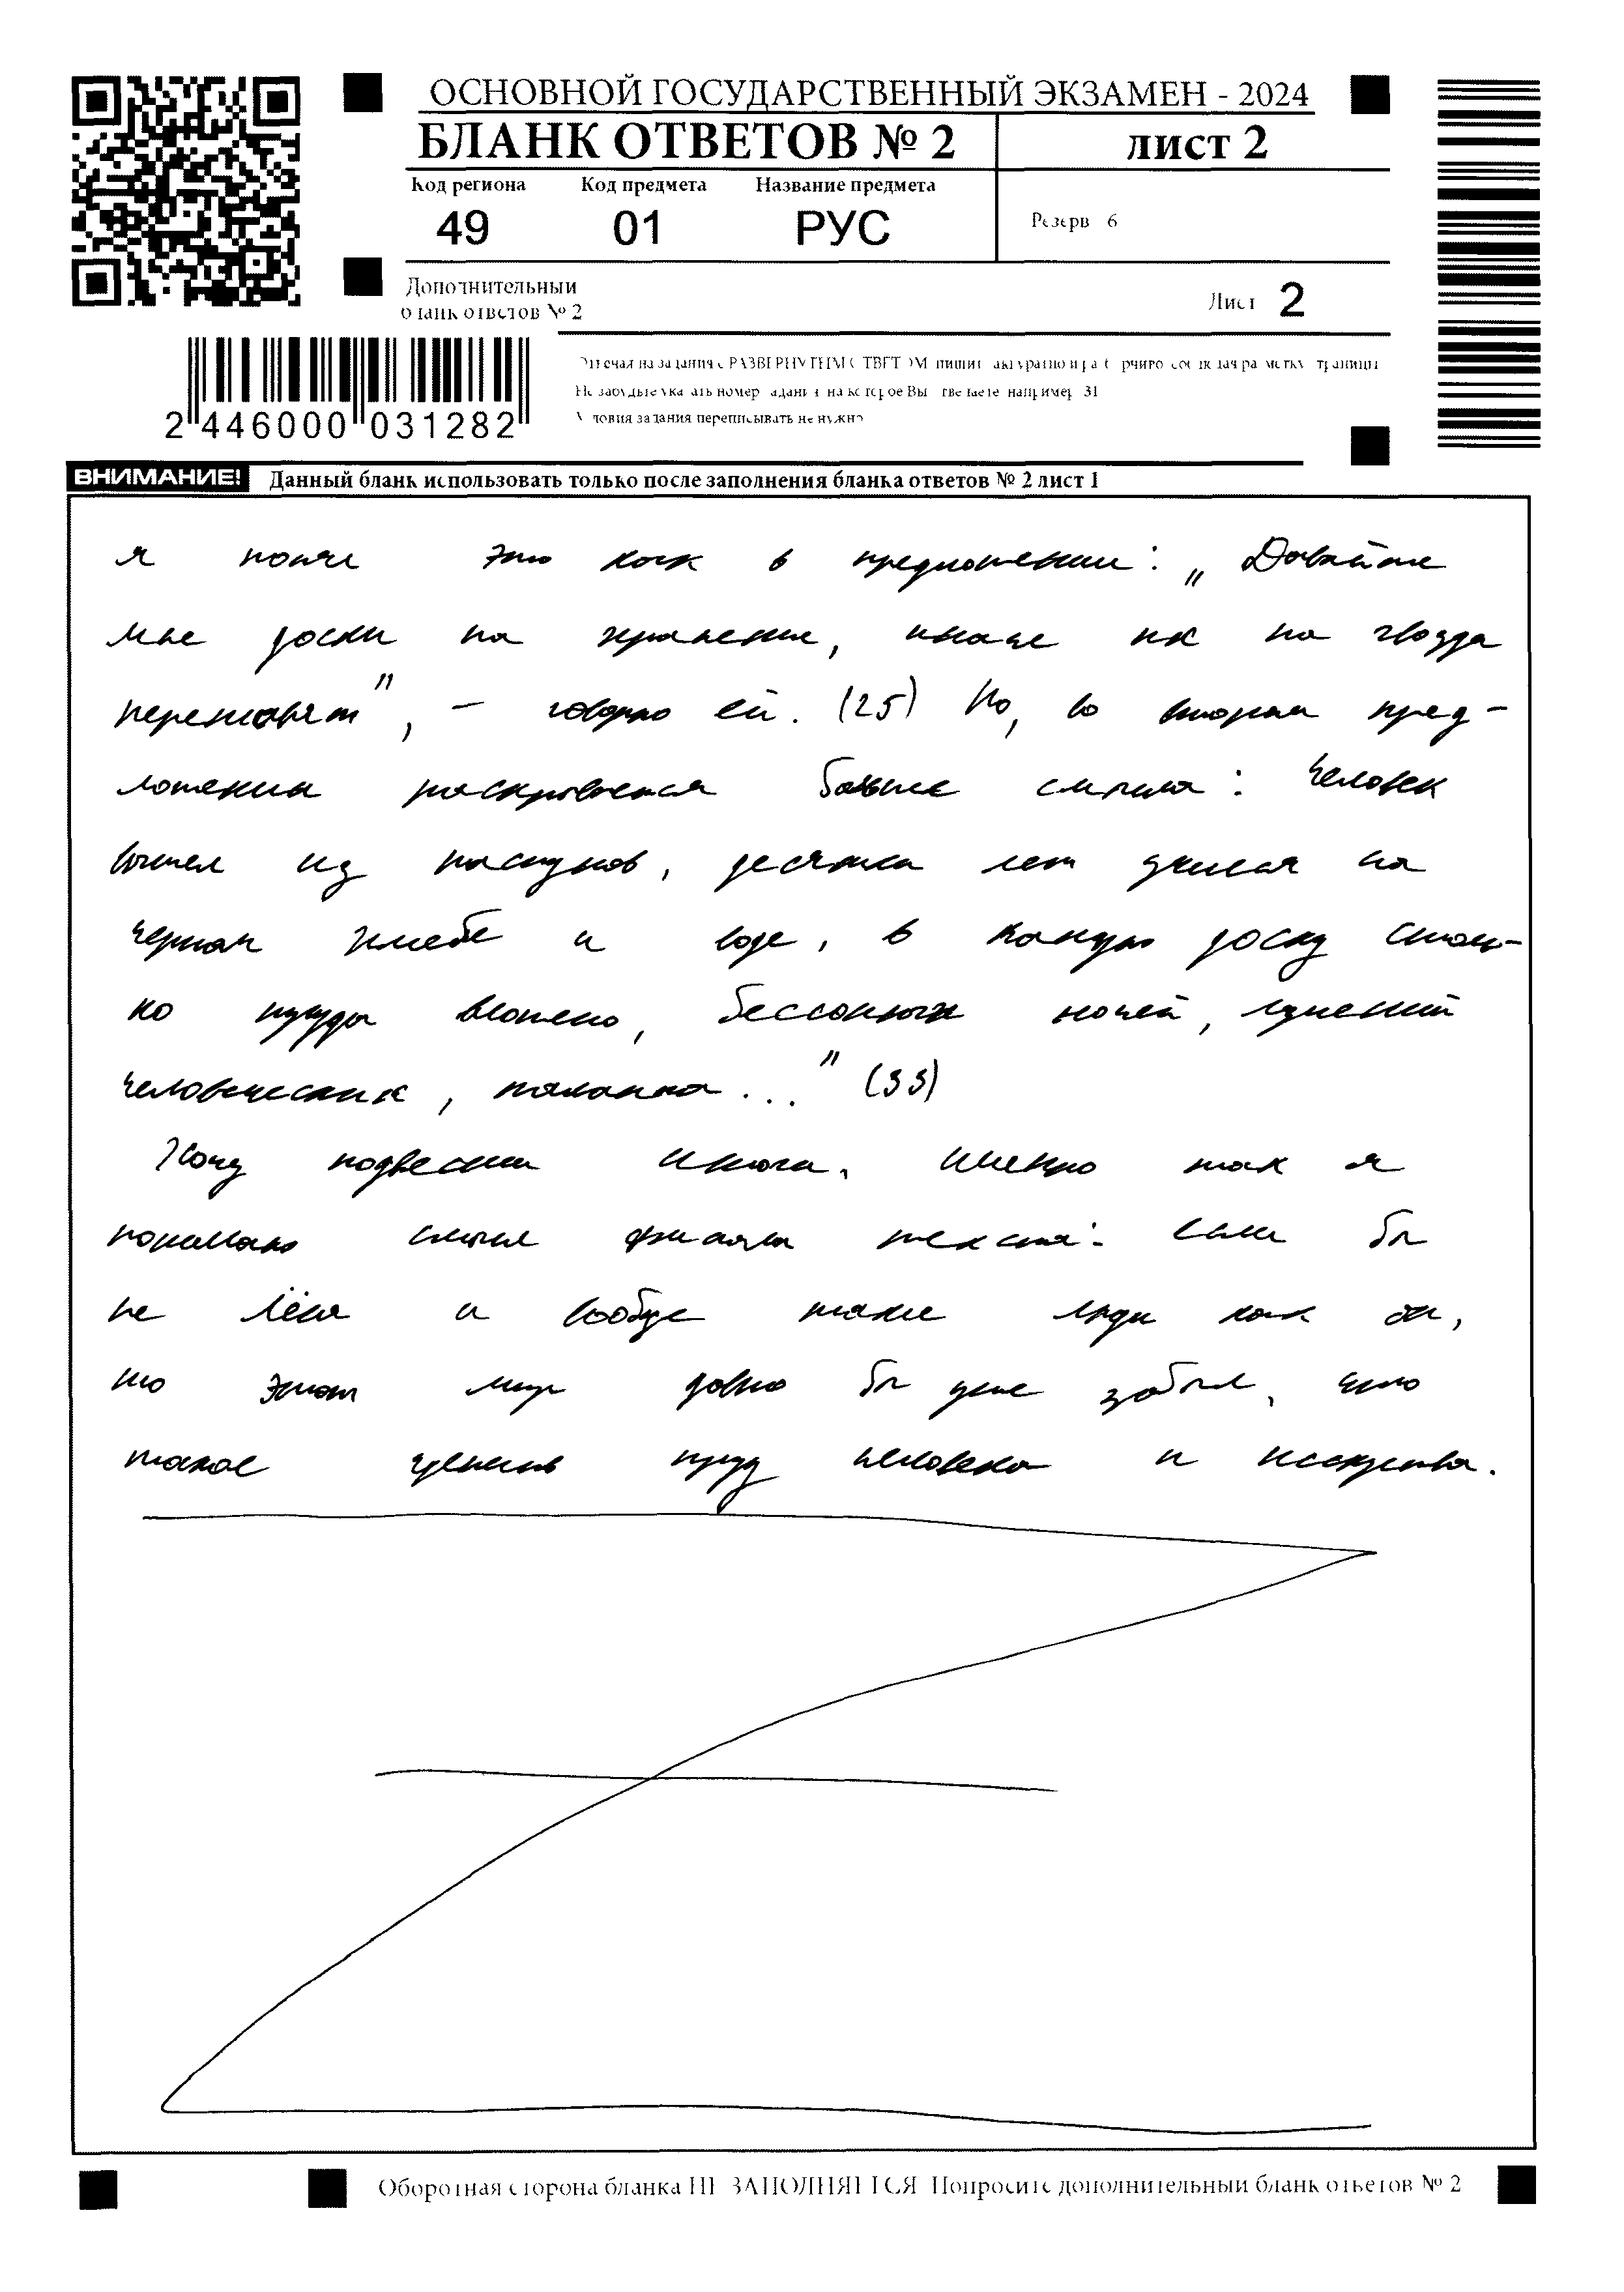 ОСНОВНОЙ ГОСУДАРСТВЕННЫЙ ЭКЗАМЕН - 2024
БЛАНК ОТВЕТОВ № 2 лист 2
Код региона Код предмета Название предмета
49 01 РУС
Резерв 6
Дополнительный
бланк ответов № 2
Лист 2
Отвечая на задания с РАЗВЕРНУТЫМ ОТВЕТОМ пишите аккуратно и разборчиво соблюдая разметку страницы
Не забудьте указать номер задания на которое Вы отвечаете например 31
Условия задания переписывать не нужно
2 446000 031282
ВНИМАНИЕ! Данный бланк использовать только после заполнения бланка ответов № 2 лист 1
я понял это как в предложении: „Давайте
мне доски на хранение, иначе их на гвозда
переплавят", – говорю ей. (25) Но, во втором пред-
ложении раскрывается больше смысла: Человек
вышел из пастухов, десятки лет учился на
черном хлебе и воде, в каждую доску столь-
ко труда вложено, бессонных ночей, мучений
человеческих, таланта..." (33)
Хочу подвести итоги, именно так я
понимаю смысл финала текста: если бы
не Лёша и вообще такие люди как он,
то этот мир давно бы уже забыл, что
такое ценить труд человека и искусства.
Оборотная сторона бланка НЕ ЗАПОЛНЯЕТСЯ Попросите дополнительный бланк ответов № 2